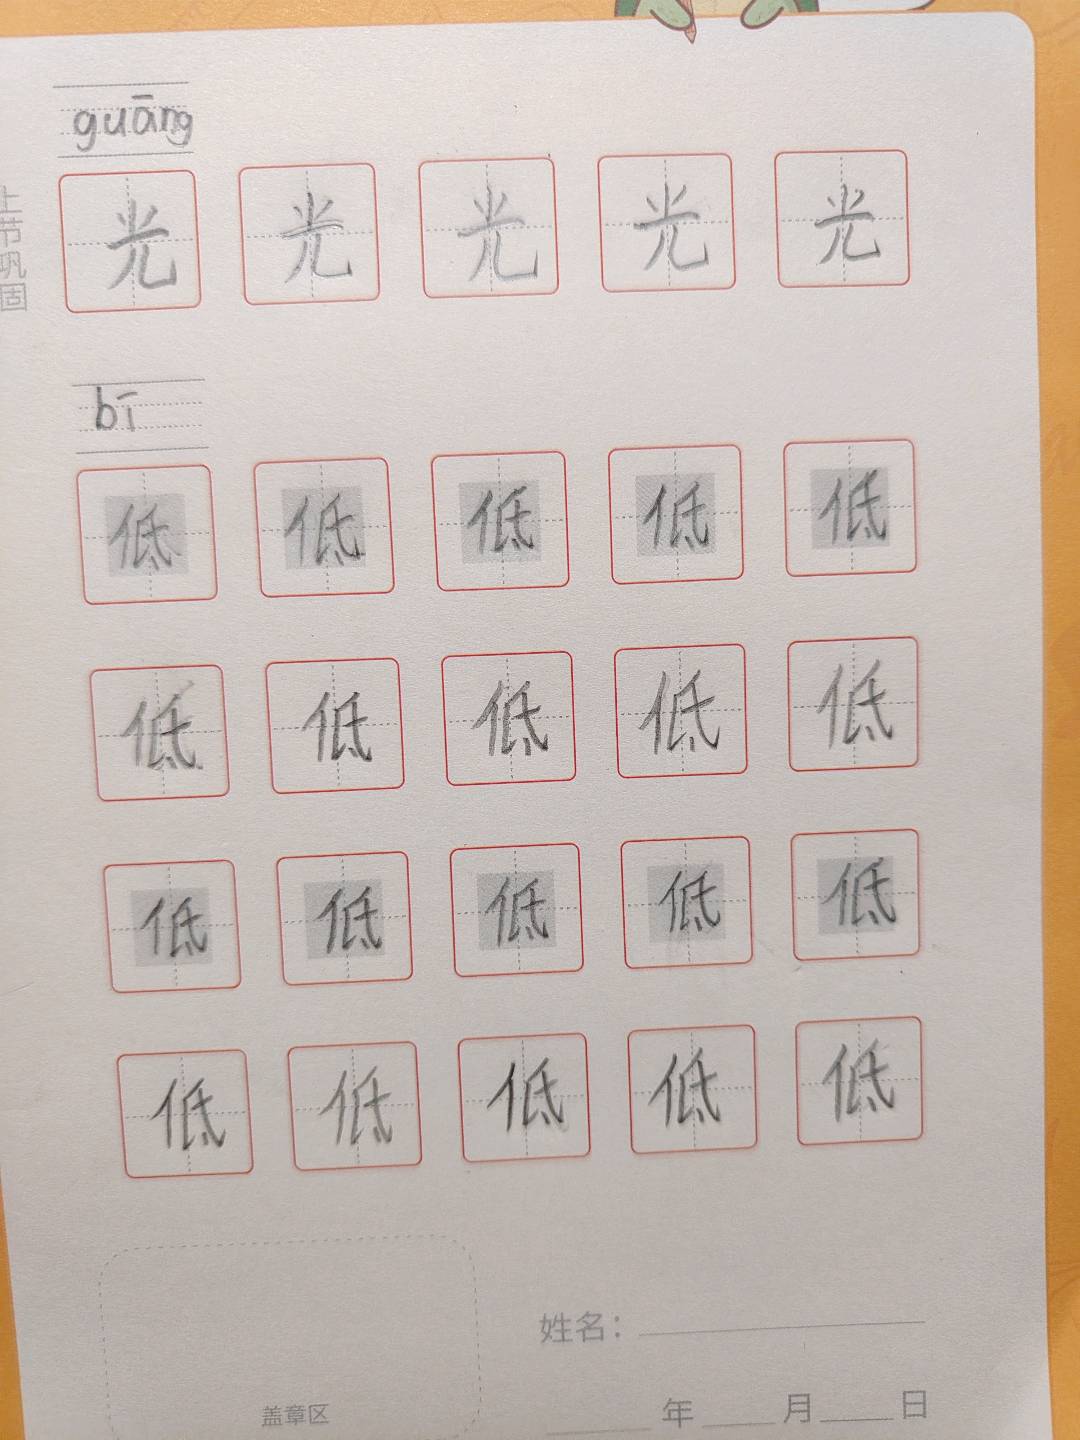 guāng
上节巩固
光 光 光 光 光
bī
低 低 低 低 低
低 低 低 低 低
低 低 低 低 低
低 低 低 低 低
姓名：
盖章区
年 月 日